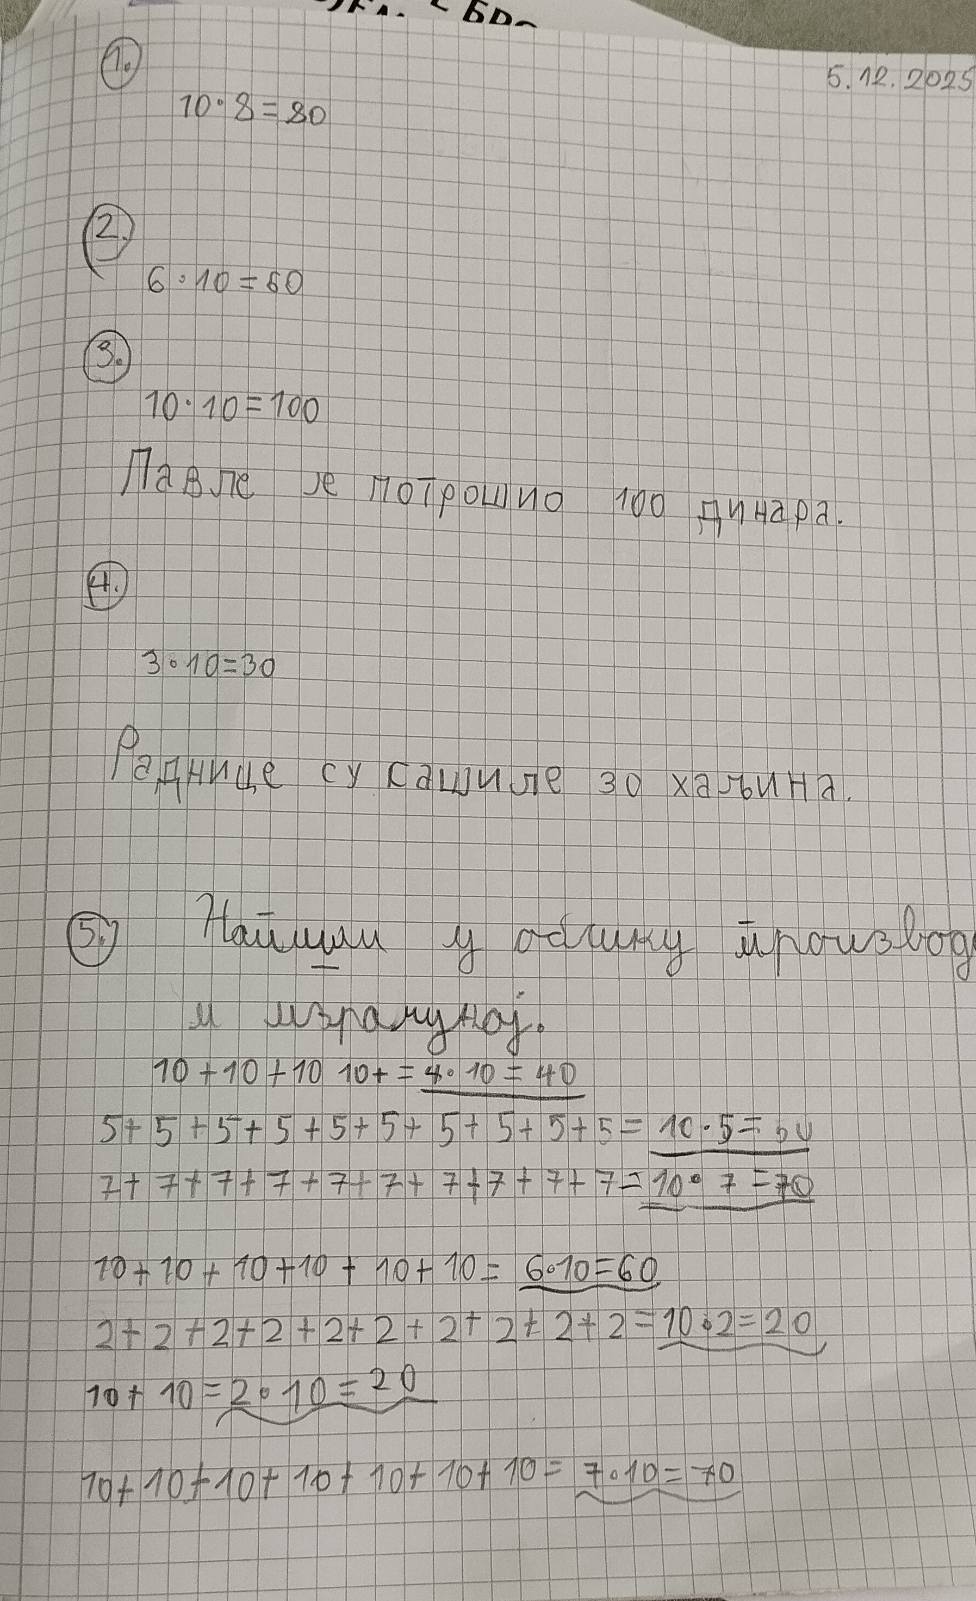 5.12.2025
1.
10·8=80
2.
6·10=60
3.
10·10=100
Павле је потрошио 100 динара.
4.
3·10=30
Раднице су сашиле 30 хаљина.
5. Напиши у облику производ
и израчунај.
10+10+10 10+=4·10=40
5+5+5+5+5+5+5+5+5+5=10·5=50
7+7+7+7+7+7+7+7+7+7=10·7=70
10+10+10+10+10+10=6·10=60
2+2+2+2+2+2+2+2+2+2=10·2=20
10+10=2·10=20
10+10+10+10+10+10+10=7·10=70